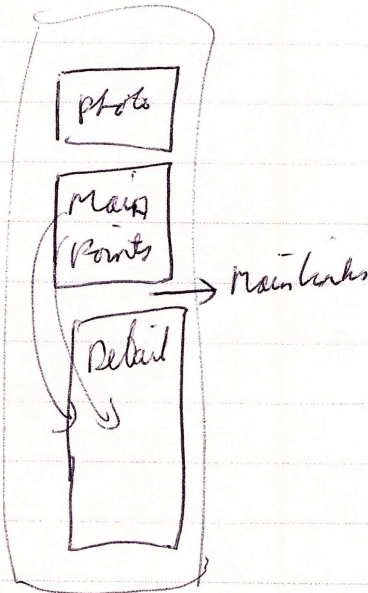 photo
Main
Points
Main links
Detail